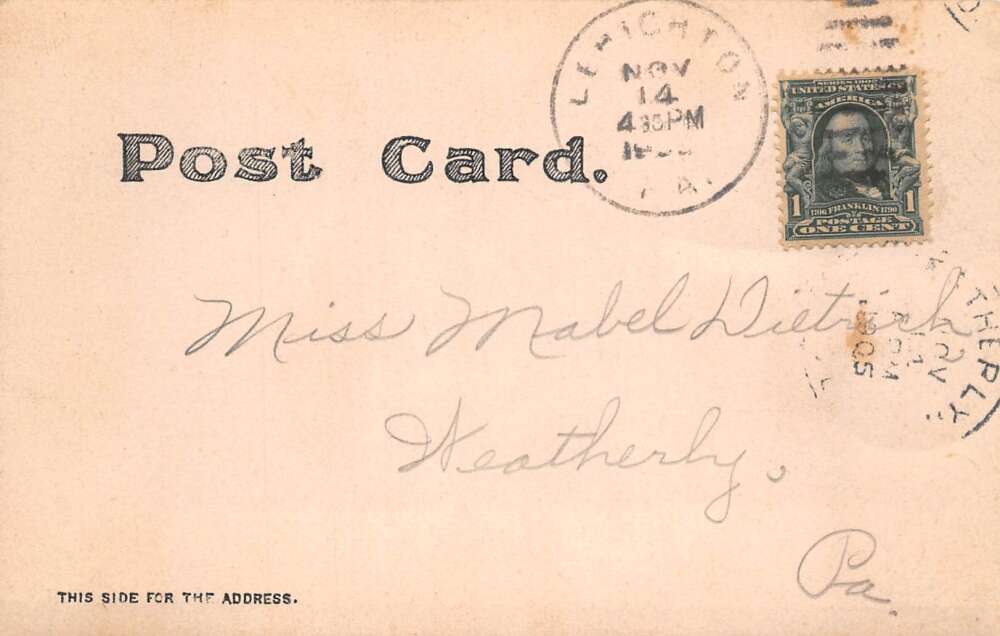 LEHIGHTON
NOV
14
4 30 PM
PA.
SERIES 1902
UNITED STATES OF
AMERICA
1706 FRANKLIN 1790
1 1
POSTAGE
ONE CENT
Post Card.
THERLY
NOV
1905
Miss Mabel Dietrich
Weatherly,
Pa.
THIS SIDE FOR THE ADDRESS.